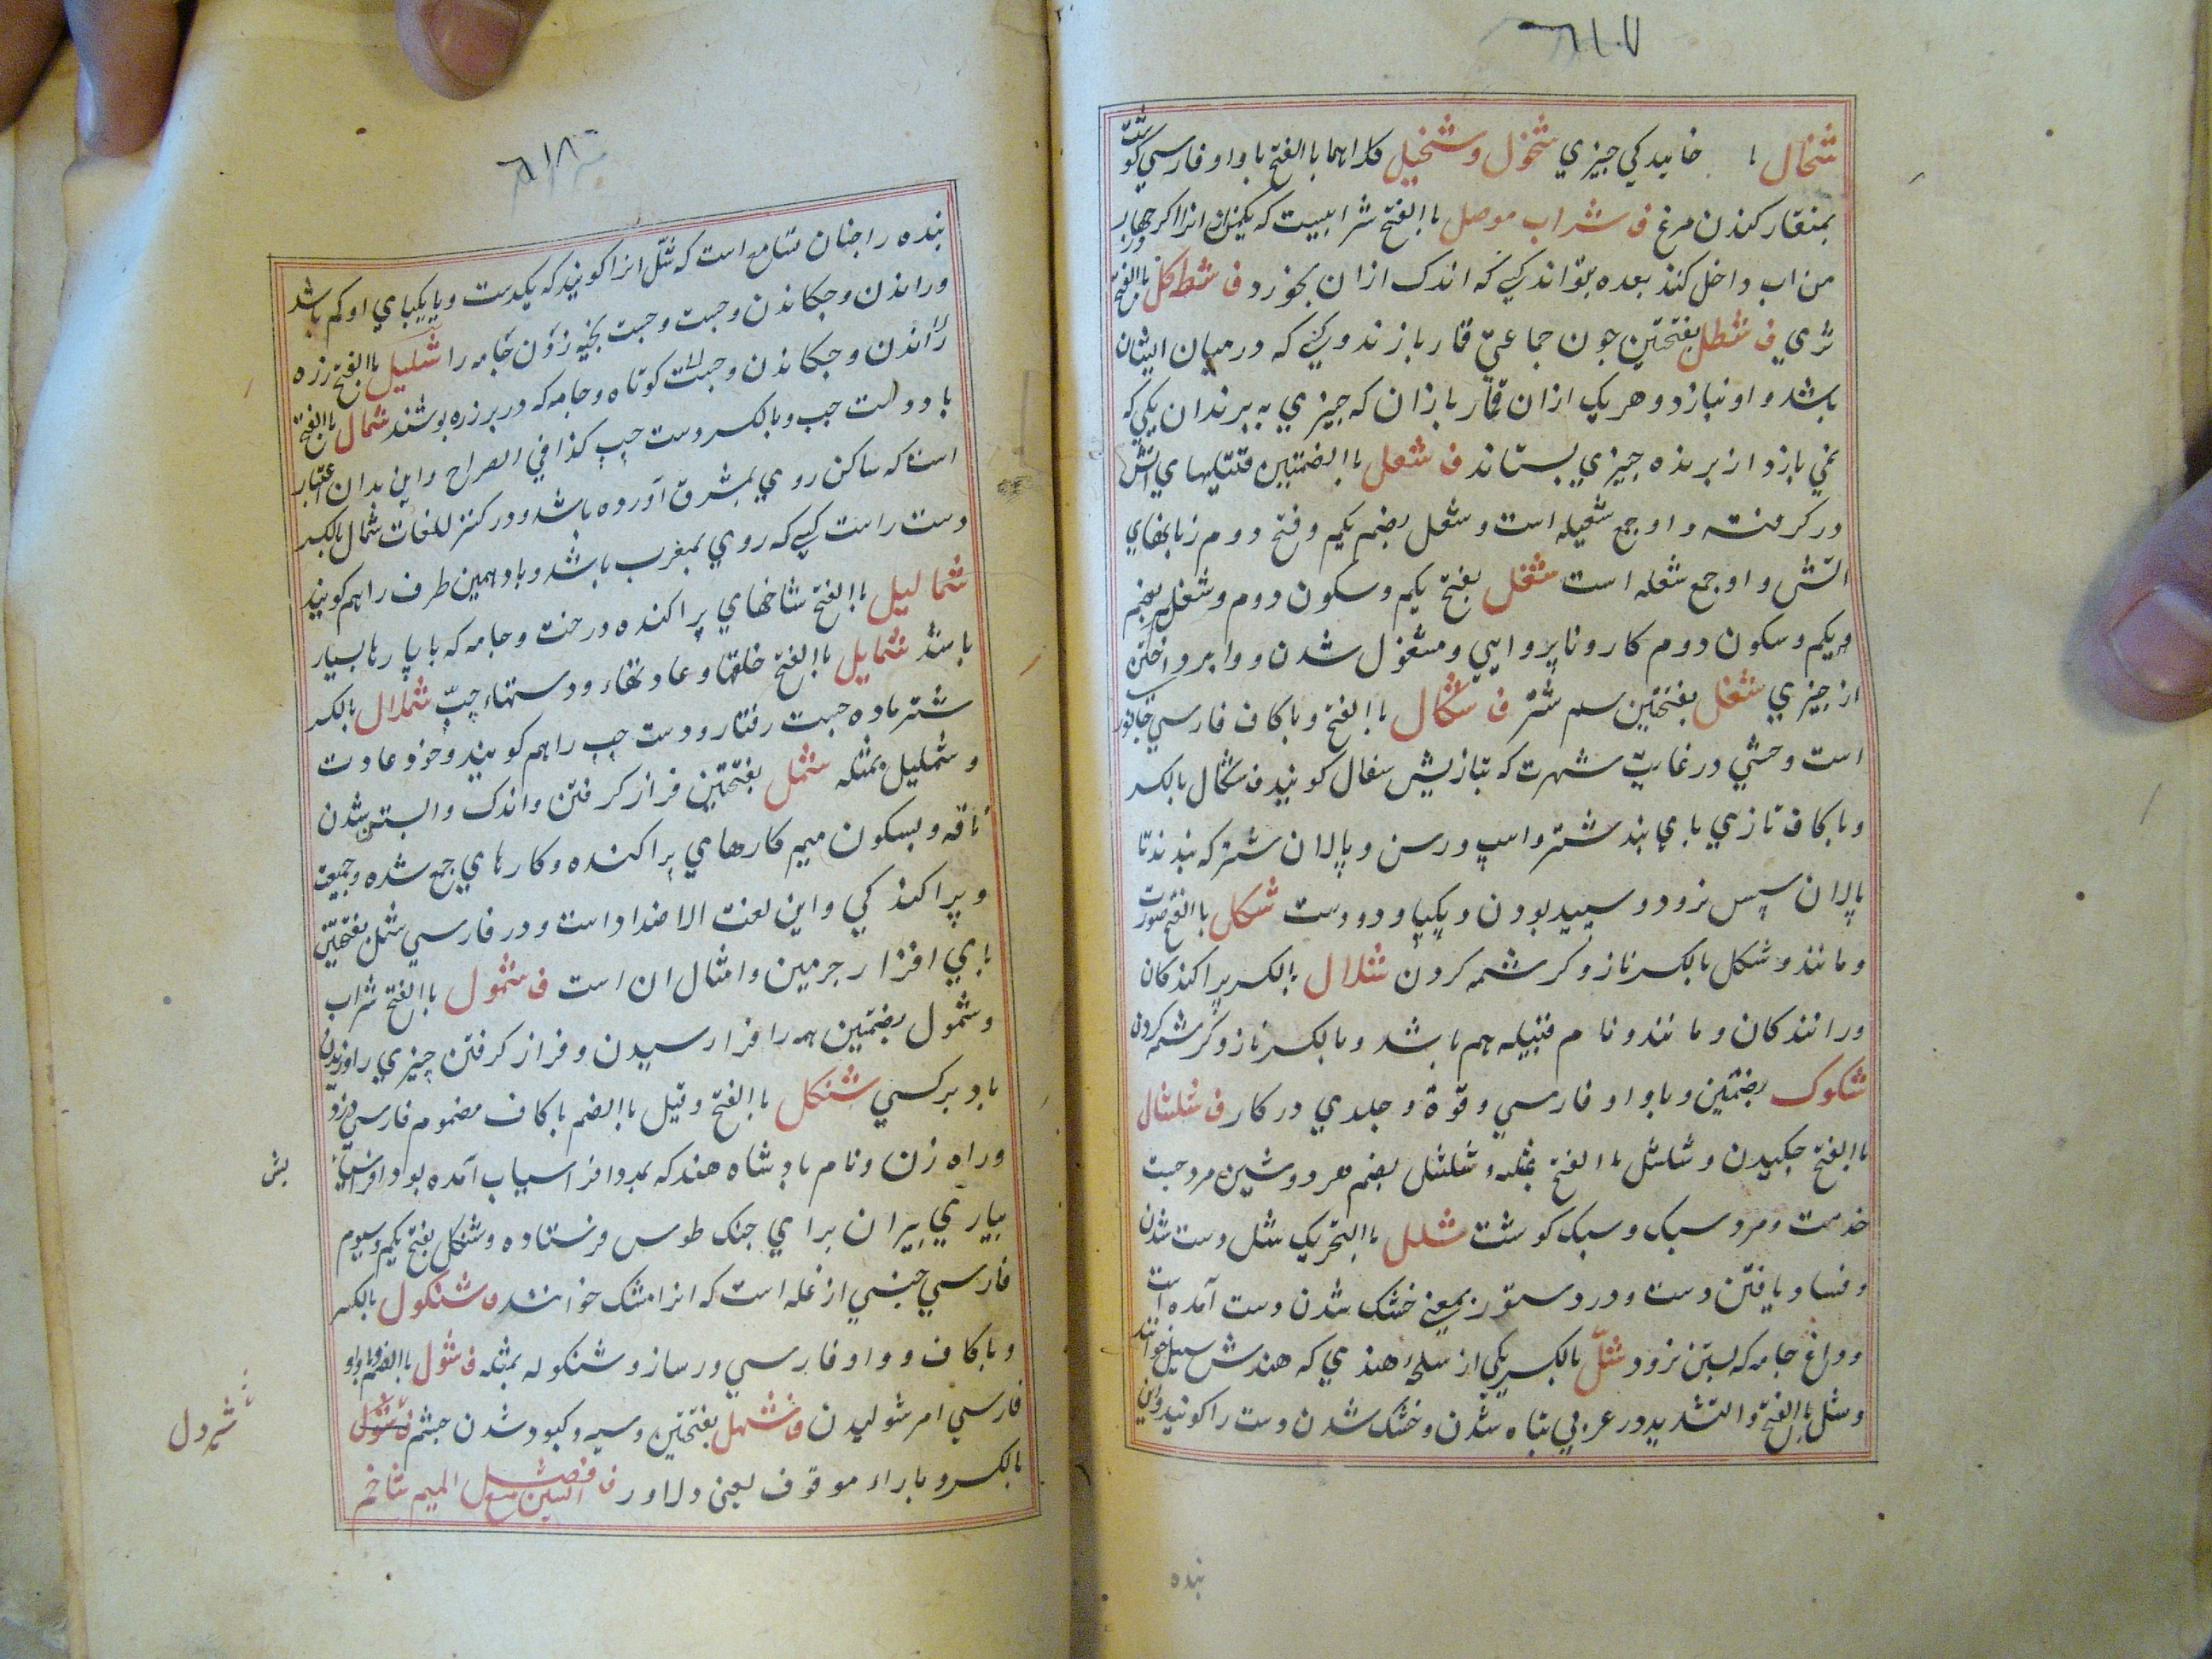 ٦١٠٧
شخال با خاییدکی چیزي شخول و شخیل کلاهما باالفتح باواو فارسي کوشت
بمنقار کندن مرغ ف شراب موصل باالفتح شرابیست که یکمن ازانرا اکر چهار
من اب داخل کنند بعده بتواند کسی که اندک ازان بخورد ف شطکل باالفتح
ثري ف شطل بفتحتین جون جماعتی قمار بازند و کسی که درمیان ایشان
باشد و او نبازد و هریک ازان قمار بازان که چیزي به برند ان یکی که
نمي بازد از برنده چیزي بستاند ف شعل باالضمتین فتیلهاي اتش
درکرفته و او جمع شعیله است و شعل بضم یکم و فتح دوم زبانهاي
اتش و او جمع شعله است شغل بفتح یکم و سکون دوم و شغل بضم
یکم و سکون دوم کار و ناپروایي و مشغول شدن و وا پرداختن
از چیزي شغل بفتحتین سم شتر ف شکال باالفتح و باکاف فارسي جانور
است وحشي در غایت شهرت که بتازیش سغال کویند ف شکال بالکسر
و باکاف تازي باي بند شتر و اسپ و رسن و پالان شتر که بندند تا
پالان سپس نرود و سپید بودن و یکپا و دو دست شکل باالفتح صورت
و مانند و شکل بالکسر ناز و کرشمه کردن شلال بالکسر پراکندکان
و رانندکان و مانند و نام قبیله هم باشد و بالکسر ناز و کرشمه کردن
شکوک بضمتین و باواو فارسي و قوة و جلدي در کار ف شلشال
باالفتح چکیدن و شلشل باالفتح بمثله و شلشل بضم هر دو شین مرد چست
خدمت و مرد سبک و سبک کوشت شلل باالتحریک شل دست شدن
و فساد یافتن دست و در دستور بمعنی خشک شدن دست آمده است
و داغ جامه که بستن نرود شل بالکسر یکي از سلحۂ هندي که هندش سیل خوانند
و شل باالفتح والتشدید در عربي تباه شدن و خشک شدن دست را کویند و این
بنده
٦١٨
بنده را چنان تسامع است که شل انرا کویند که یکدست و یا یکپاي او کم باشد
و راندن و چکاندن و چست و چست بخیه زدن جامه را شلیل باالفتح زره
راندن و چکاندن و چلت کوتاه و جامه که در بر زره بوشند شمال باالفتح
باد و دست چپ و بالکسر دست چپ کذا في الصراح و این بدان اعتبار
است که ساکن روي بمشرق آورده باشد و در کنز للغات شمال بالکسر
دست راست کسی که روي بمغرب باشد و باد همین طرف را هم کویند
شمالیل باالفتح شاخهاي پراکنده درخت و جامه که باپارها بسیار
باشد شمایل باالفتح خلقها و عادتها و دستهاء چپ شملال بالکسر
شتر ماده چست رفتار و دست چپ را هم کویند و خو و عادت
و شملیل بمثله شمل بفتحتین فراز کرفتن و اندک و ابستن شدن
ناقه و بسکون میم کارهاي پراکنده و کارهاي جمع شده و جمیعت
و پراکندکي و این لغت الاضداد است و در فارسي شمل بفتحتین
پاي افزار چرمین و امثال ان است ف شمول باالفتح شراب
و شمول بضمتین همه را فرا رسیدن و فراز کرفتن چیزي را و وزیدن
باد برکسي شنکل باالفتح و قیل باالضم باکاف مضموم فارسي دزد
و راه زن و نام بادشاه هند که بمدد افراسیاب آمده بود و افراسیاب
بیاري پیران براي جنک طوس فرستاده و شنکل بفتح یکم و سیوم
فارسي جنسي از غله است که انرا مشنک خوانند ف شنکول بالکسر
و باکاف و واو فارسي ورساز و شنکوله بمثله ف شول باالضم و باواو
فارسي امر شولیدن ف شهل بفتحتین و سیه و کبود شدن چشم ف شول
بالکسر و باراء موقوف یعنی دلاور ف فصل الشین مع المیم شاخم
بش
شیردل